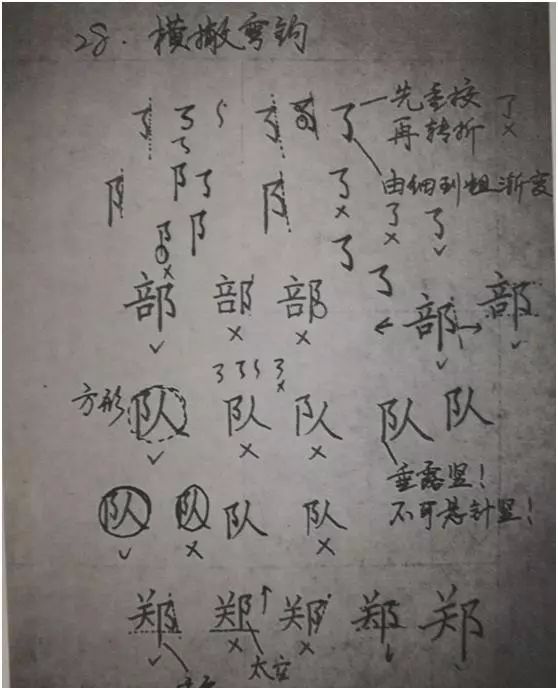 28. 横撇弯钩
先重按
再转折
由细到粗渐变
部 部 部 部 部
方形 队 队 队 队 队
垂露竖！
不可悬针竖！
队 队 队 队
郑 郑 郑 郑 郑
太空